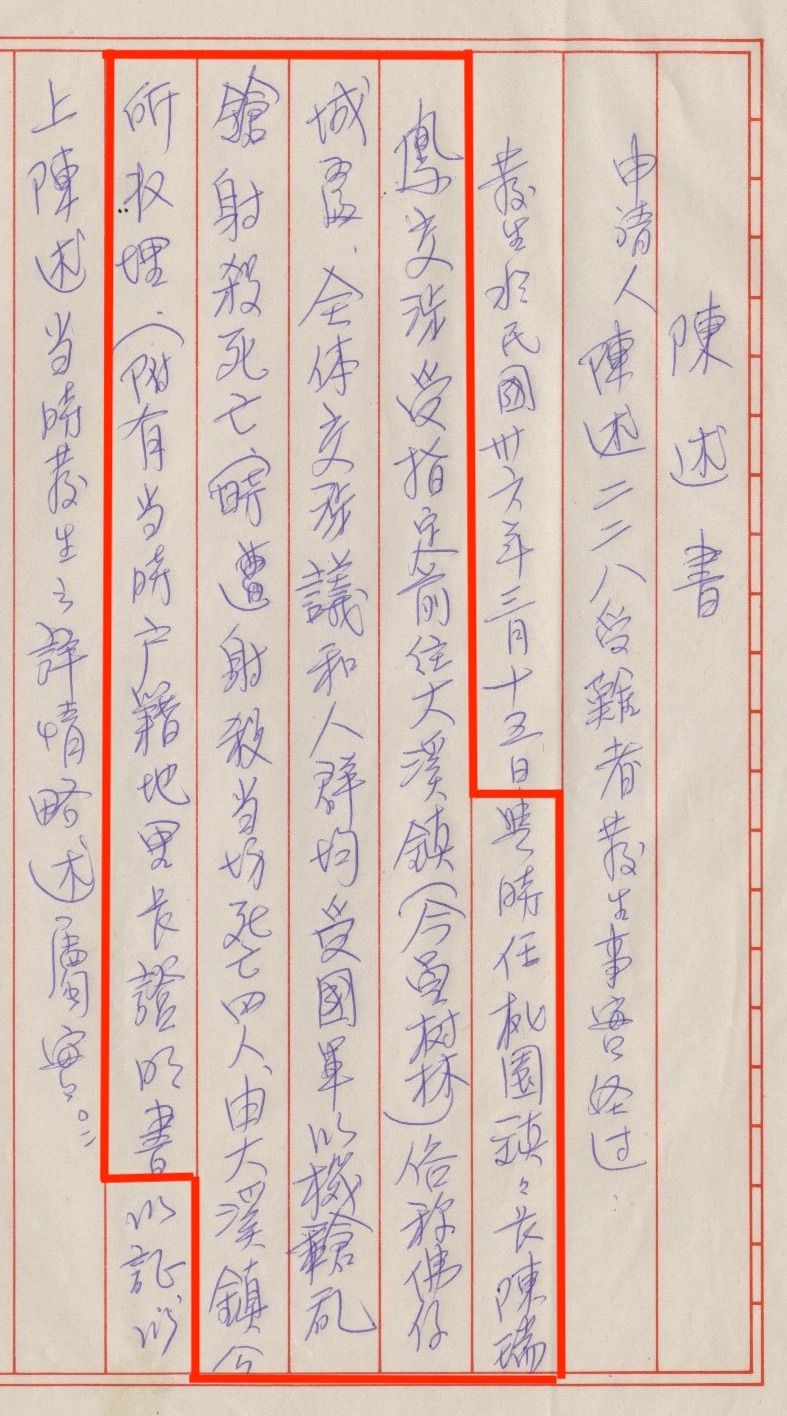 陳述書
申請人陳述二二八受難者發生事實經過:
發生於民國卅六年三月十五日與時任桃園鎮々長陳瑞
鳳交涉受指定前往大溪鎮(今員樹林)俗称佛仔
城處、全体交涉議和人群均受國軍以機鎗乱
鎗射殺死亡、當時遭射殺当場死亡四人、由大溪鎮公
所收埋.(附有当時户籍地里長證明書)以証以
上陳述当時發生之詳情略述屬實。